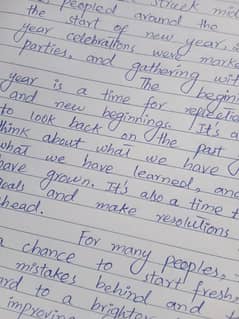 struck mid
peopled around the
the start of new year.
year celebrations were marke
parties, and gathering wit
The begin
year is a time for reflection
and new beginnings. It's a
to look back on the past
think about what we have
what we have learned, and
have grown. It's also a time t
goals and make resolutions
ahead.
For many peoples,
a chance to start fresh,
mistakes behind and
ard to a brighter
improving